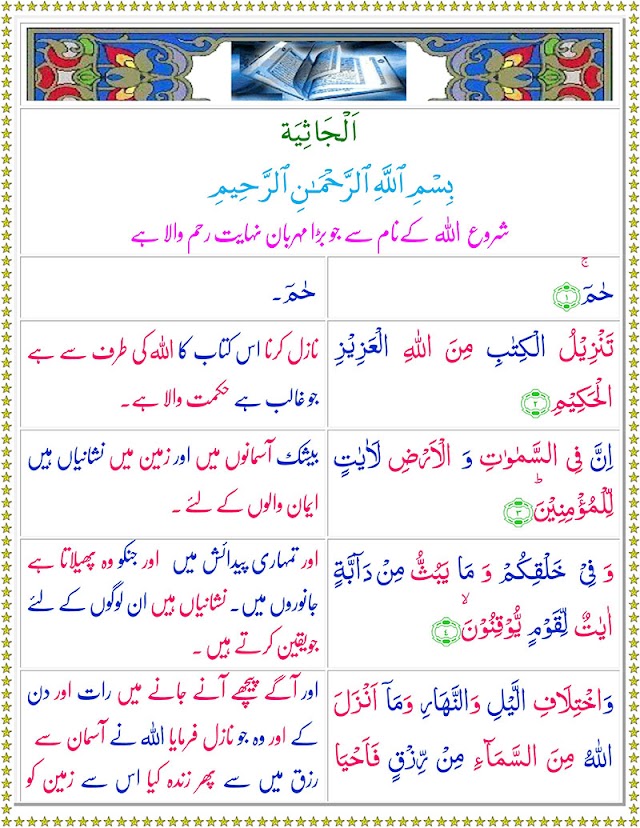 اَلْجَاثِيَة
بِسْمِ ٱللَّهِ ٱلرَّحْمَـٰنِ ٱلرَّحِيمِ
شروع اللہ کے نام سے جو بڑا مہربان نہایت رحم والا ہے
حٰمٓ ۚ ۝١
حٰمٓ۔
تَنْزِيْلُ الْكِتٰبِ مِنَ اللّٰهِ الْعَزِيْزِ
الْحَكِيْمِ ۝٢
نازل کرنا اس کتاب کا اللہ کی طرف سے ہے
جو غالب ہے حکمت والا ہے۔
اِنَّ فِى السَّمٰوٰتِ وَ الْاَرْضِ لَاٰيٰتٍ
لِّلْمُؤْمِنِيْنَ ؕ ۝٣
بیشک آسمانوں میں اور زمین میں نشانیاں ہیں
ایمان والوں کے لئے ۔
وَ فِىْ خَلْقِكُمْ وَ مَا يَبُثُّ مِنْ دَآبَّةٍ
اٰيٰتٌ لِّقَوْمٍ يُّوْقِنُوْنَ ۙ ۝٤
اور تمہاری پیدائش میں اور جنکو وہ پھیلاتا ہے
جانوروں میں۔ نشانیاں ہیں ان لوگوں کے لئے
جو یقین کرتے ہیں ۔
وَاخْتِلَافِ الَّيْلِ وَالنَّهَارِ وَمَآ اَنْزَلَ
اللّٰهُ مِنَ السَّمَآءِ مِنْ رِّزْقٍ فَاَحْيَا
اور آگے پیچھے آنے جانے میں رات اور دن
کے اور وہ جو نازل فرمایا اللہ نے آسمان سے
رزق میں سے پھر زندہ کیا اس سے زمین کو